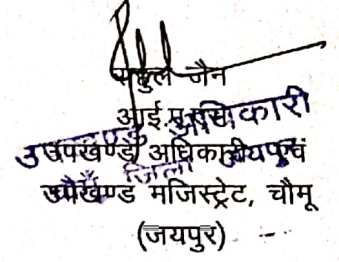 राहुल जैन
आई.ए.एस.
उपखण्ड अधिकारी एवं
उपखण्ड मजिस्ट्रेट, चौमू
(जयपुर)
उपखण्ड अधिकारी
जिला जयपुर